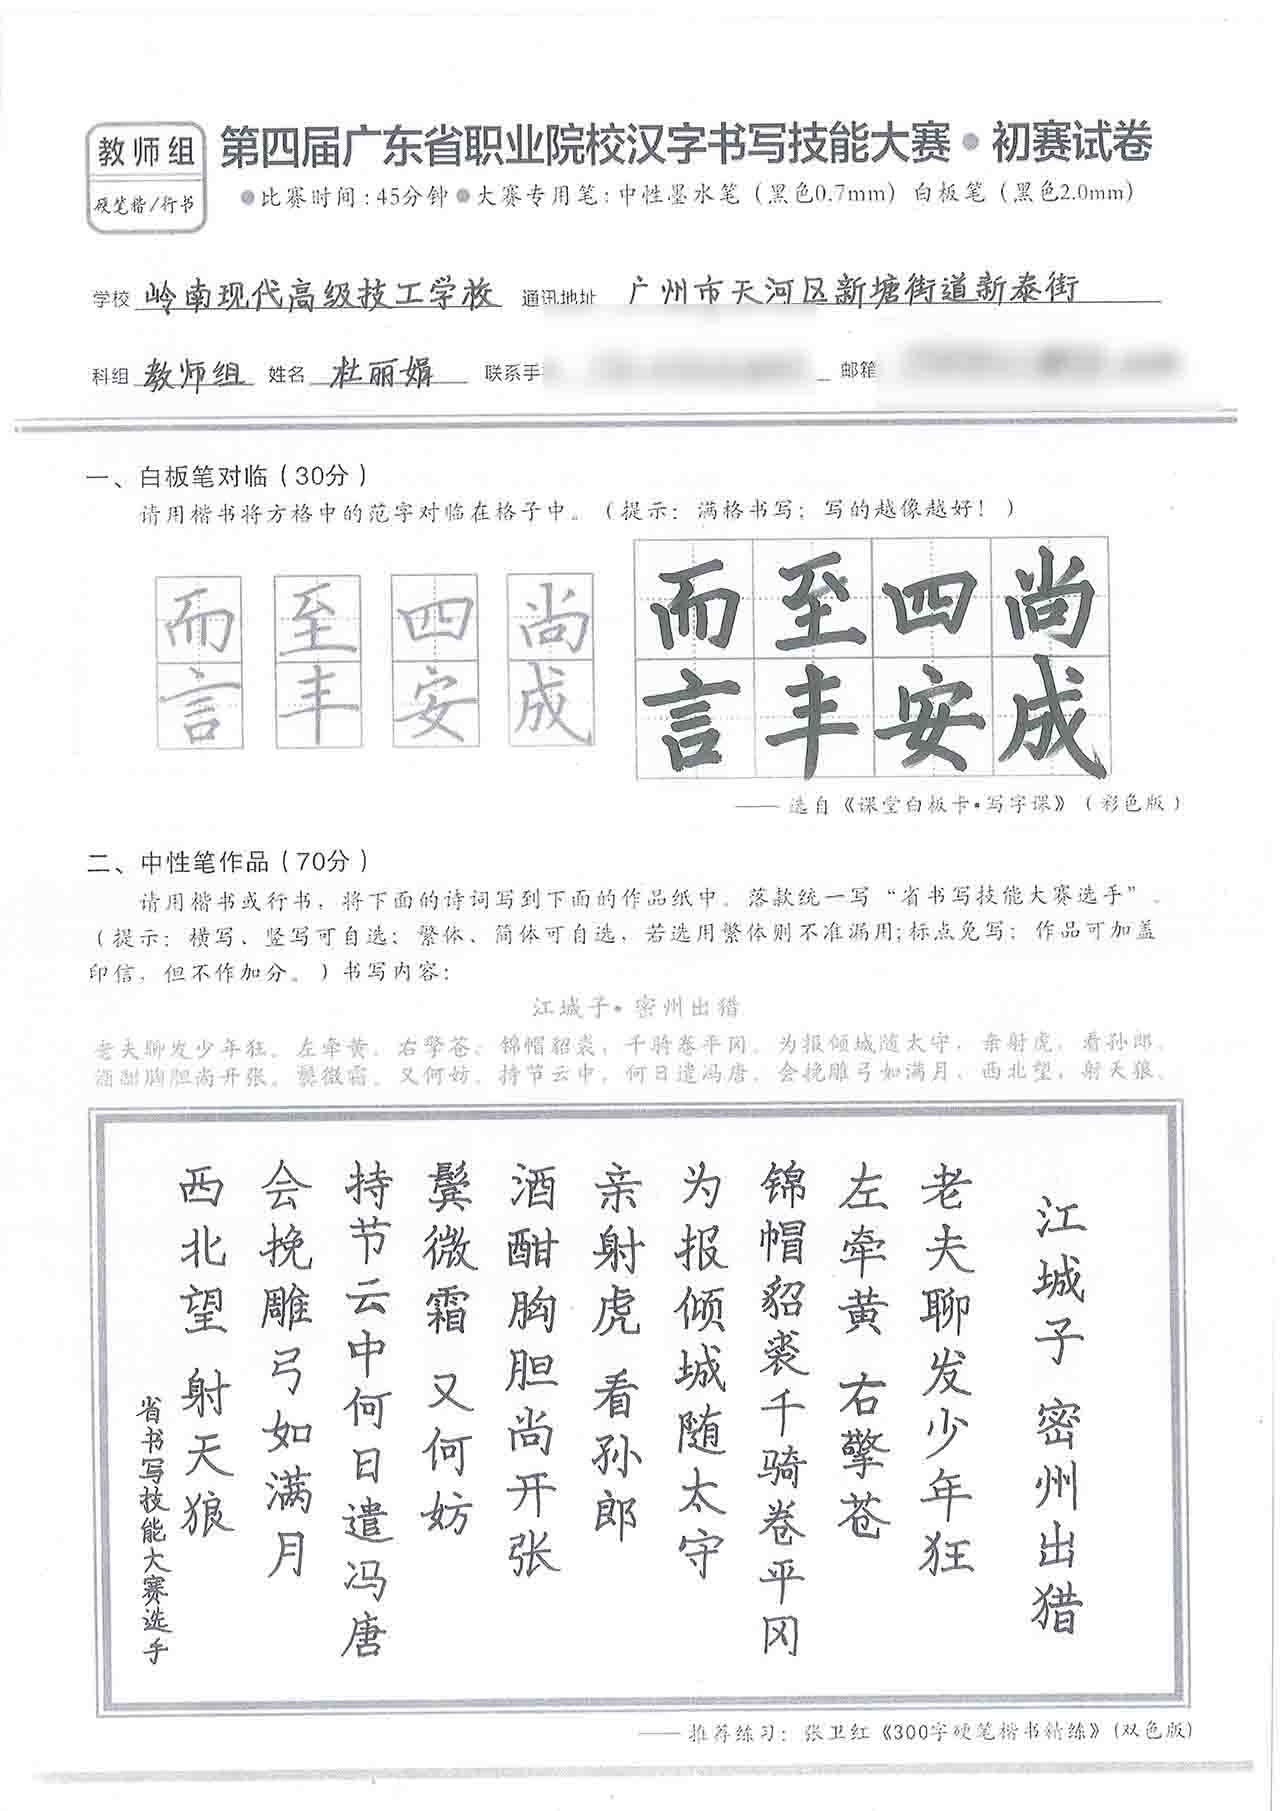 教师组
硬笔楷/行书
第四届广东省职业院校汉字书写技能大赛·初赛试卷
●比赛时间:45分钟●大赛专用笔:中性墨水笔(黑色0.7mm) 白板笔(黑色2.0mm)
学校 岭南现代高级技工学校 通讯地址 广州市天河区新塘街道新泰街
科组 教师组 姓名 杜丽娟 联系手 邮箱
一、白板笔对临(30分)
请用楷书将方格中的范字对临在格子中。(提示:满格书写;写的越像越好!)
而至四尚
言丰安成
而至四尚
言丰安成
——选自《课堂白板卡·写字课》(彩色版)
二、中性笔作品(70分)
请用楷书或行书,将下面的诗词写到下面的作品纸中。落款统一写“省书写技能大赛选手”。
(提示:横写、竖写可自选;繁体、简体可自选,若选用繁体则不准漏用;标点免写;作品可加盖
印信,但不作加分。)书写内容:
江城子·密州出猎
老夫聊发少年狂,左牵黄,右擎苍,锦帽貂裘,千骑卷平冈。为报倾城随太守,亲射虎,看孙郎。
酒酣胸胆尚开张。鬓微霜,又何妨。持节云中,何日遣冯唐。会挽雕弓如满月,西北望,射天狼。
江城子 密州出猎
老夫聊发少年狂
左牵黄 右擎苍
锦帽貂裘千骑卷平冈
为报倾城随太守
亲射虎 看孙郎
酒酣胸胆尚开张
鬓微霜 又何妨
持节云中何日遣冯唐
会挽雕弓如满月
西北望 射天狼
省书写技能大赛选手
——推荐练习:张卫红《300字硬笔楷书精练》(双色版)